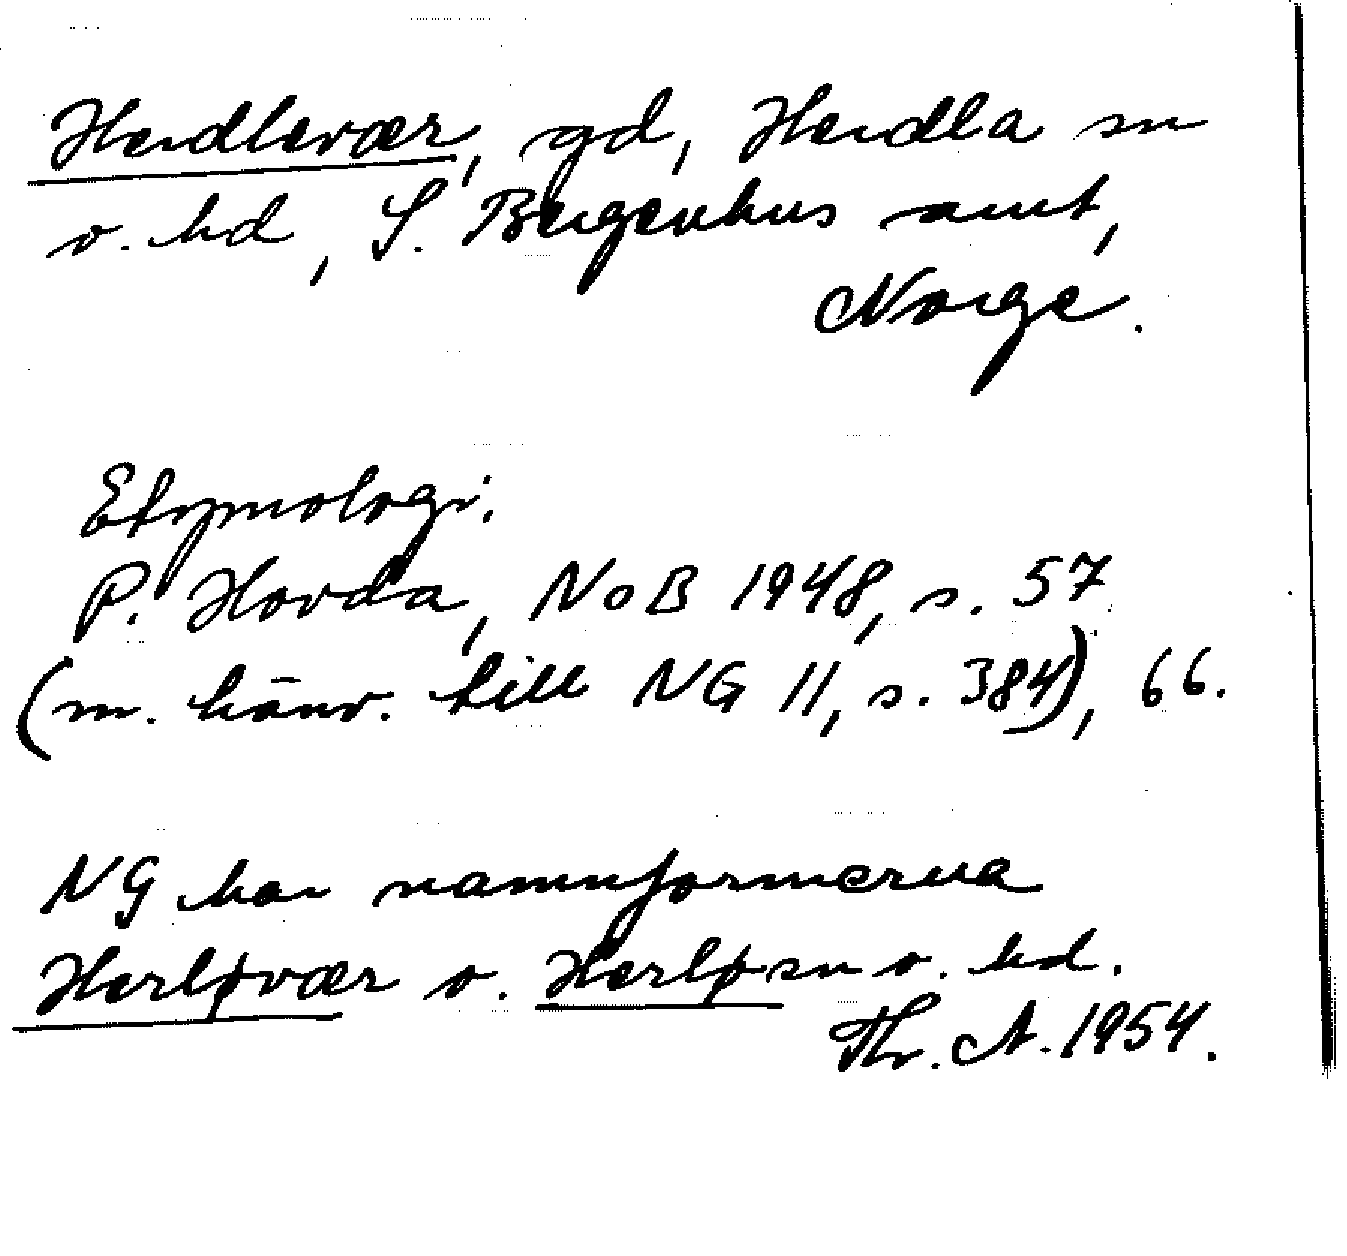 Herdlevær, gd, Herdla sn
o. hd, S. Bergenhus amt,
Norge.
Etymologi:
P. Hovda, NoB 1948, s. 57
(m. hänv. till NG 11, s. 384), 66.
NG har namnformerna
Herløvær o. Herlø sn o. hd.
Th. A. 1954.